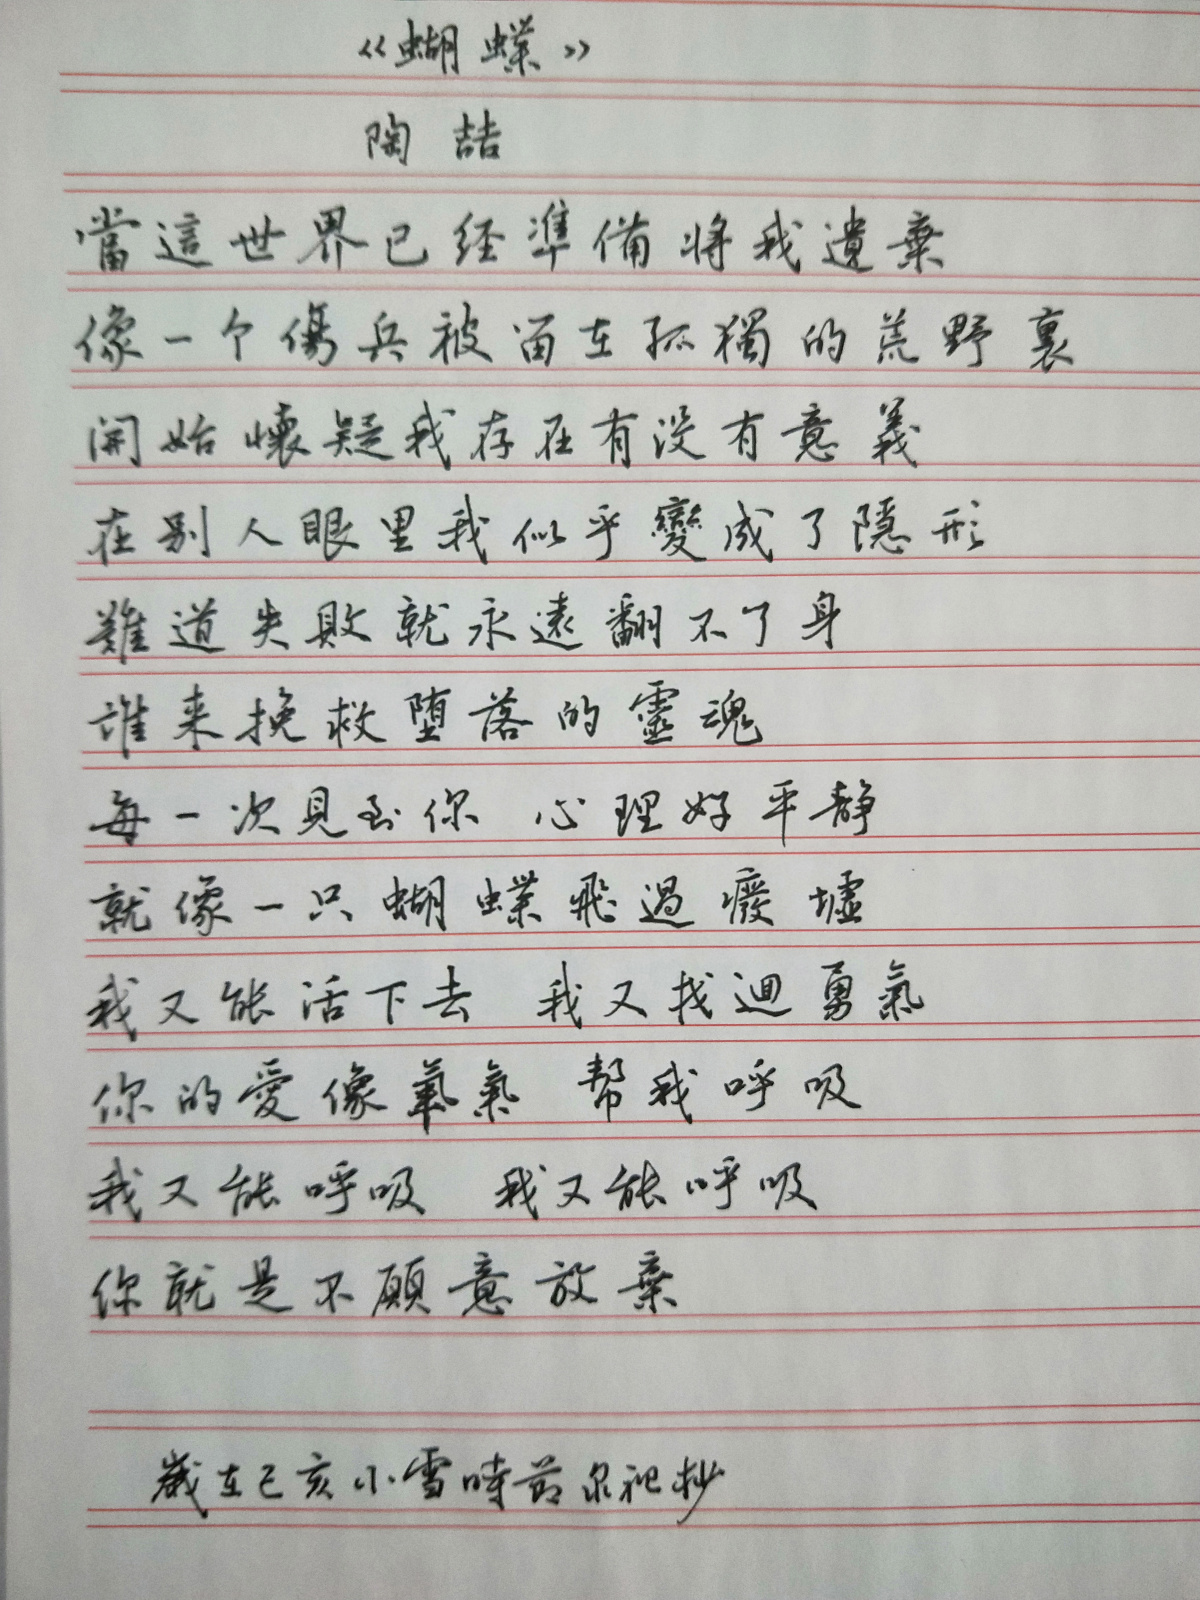 《蝴蝶》
陶喆
當這世界已经準備將我遺棄
像一个傷兵被留在孤獨的荒野裏
開始懷疑我存在有没有意義
在别人眼里我似乎變成了隱形
難道失敗就永遠翻不了身
谁来挽救堕落的靈魂
每一次見到你 心理好平静
就像一只蝴蝶飛過廢墟
我又能活下去 我又找迴勇氣
你的愛像氧氣 帮我呼吸
我又能呼吸 我又能呼吸
你就是不願意放棄
歲在己亥小雪時節泉祀抄